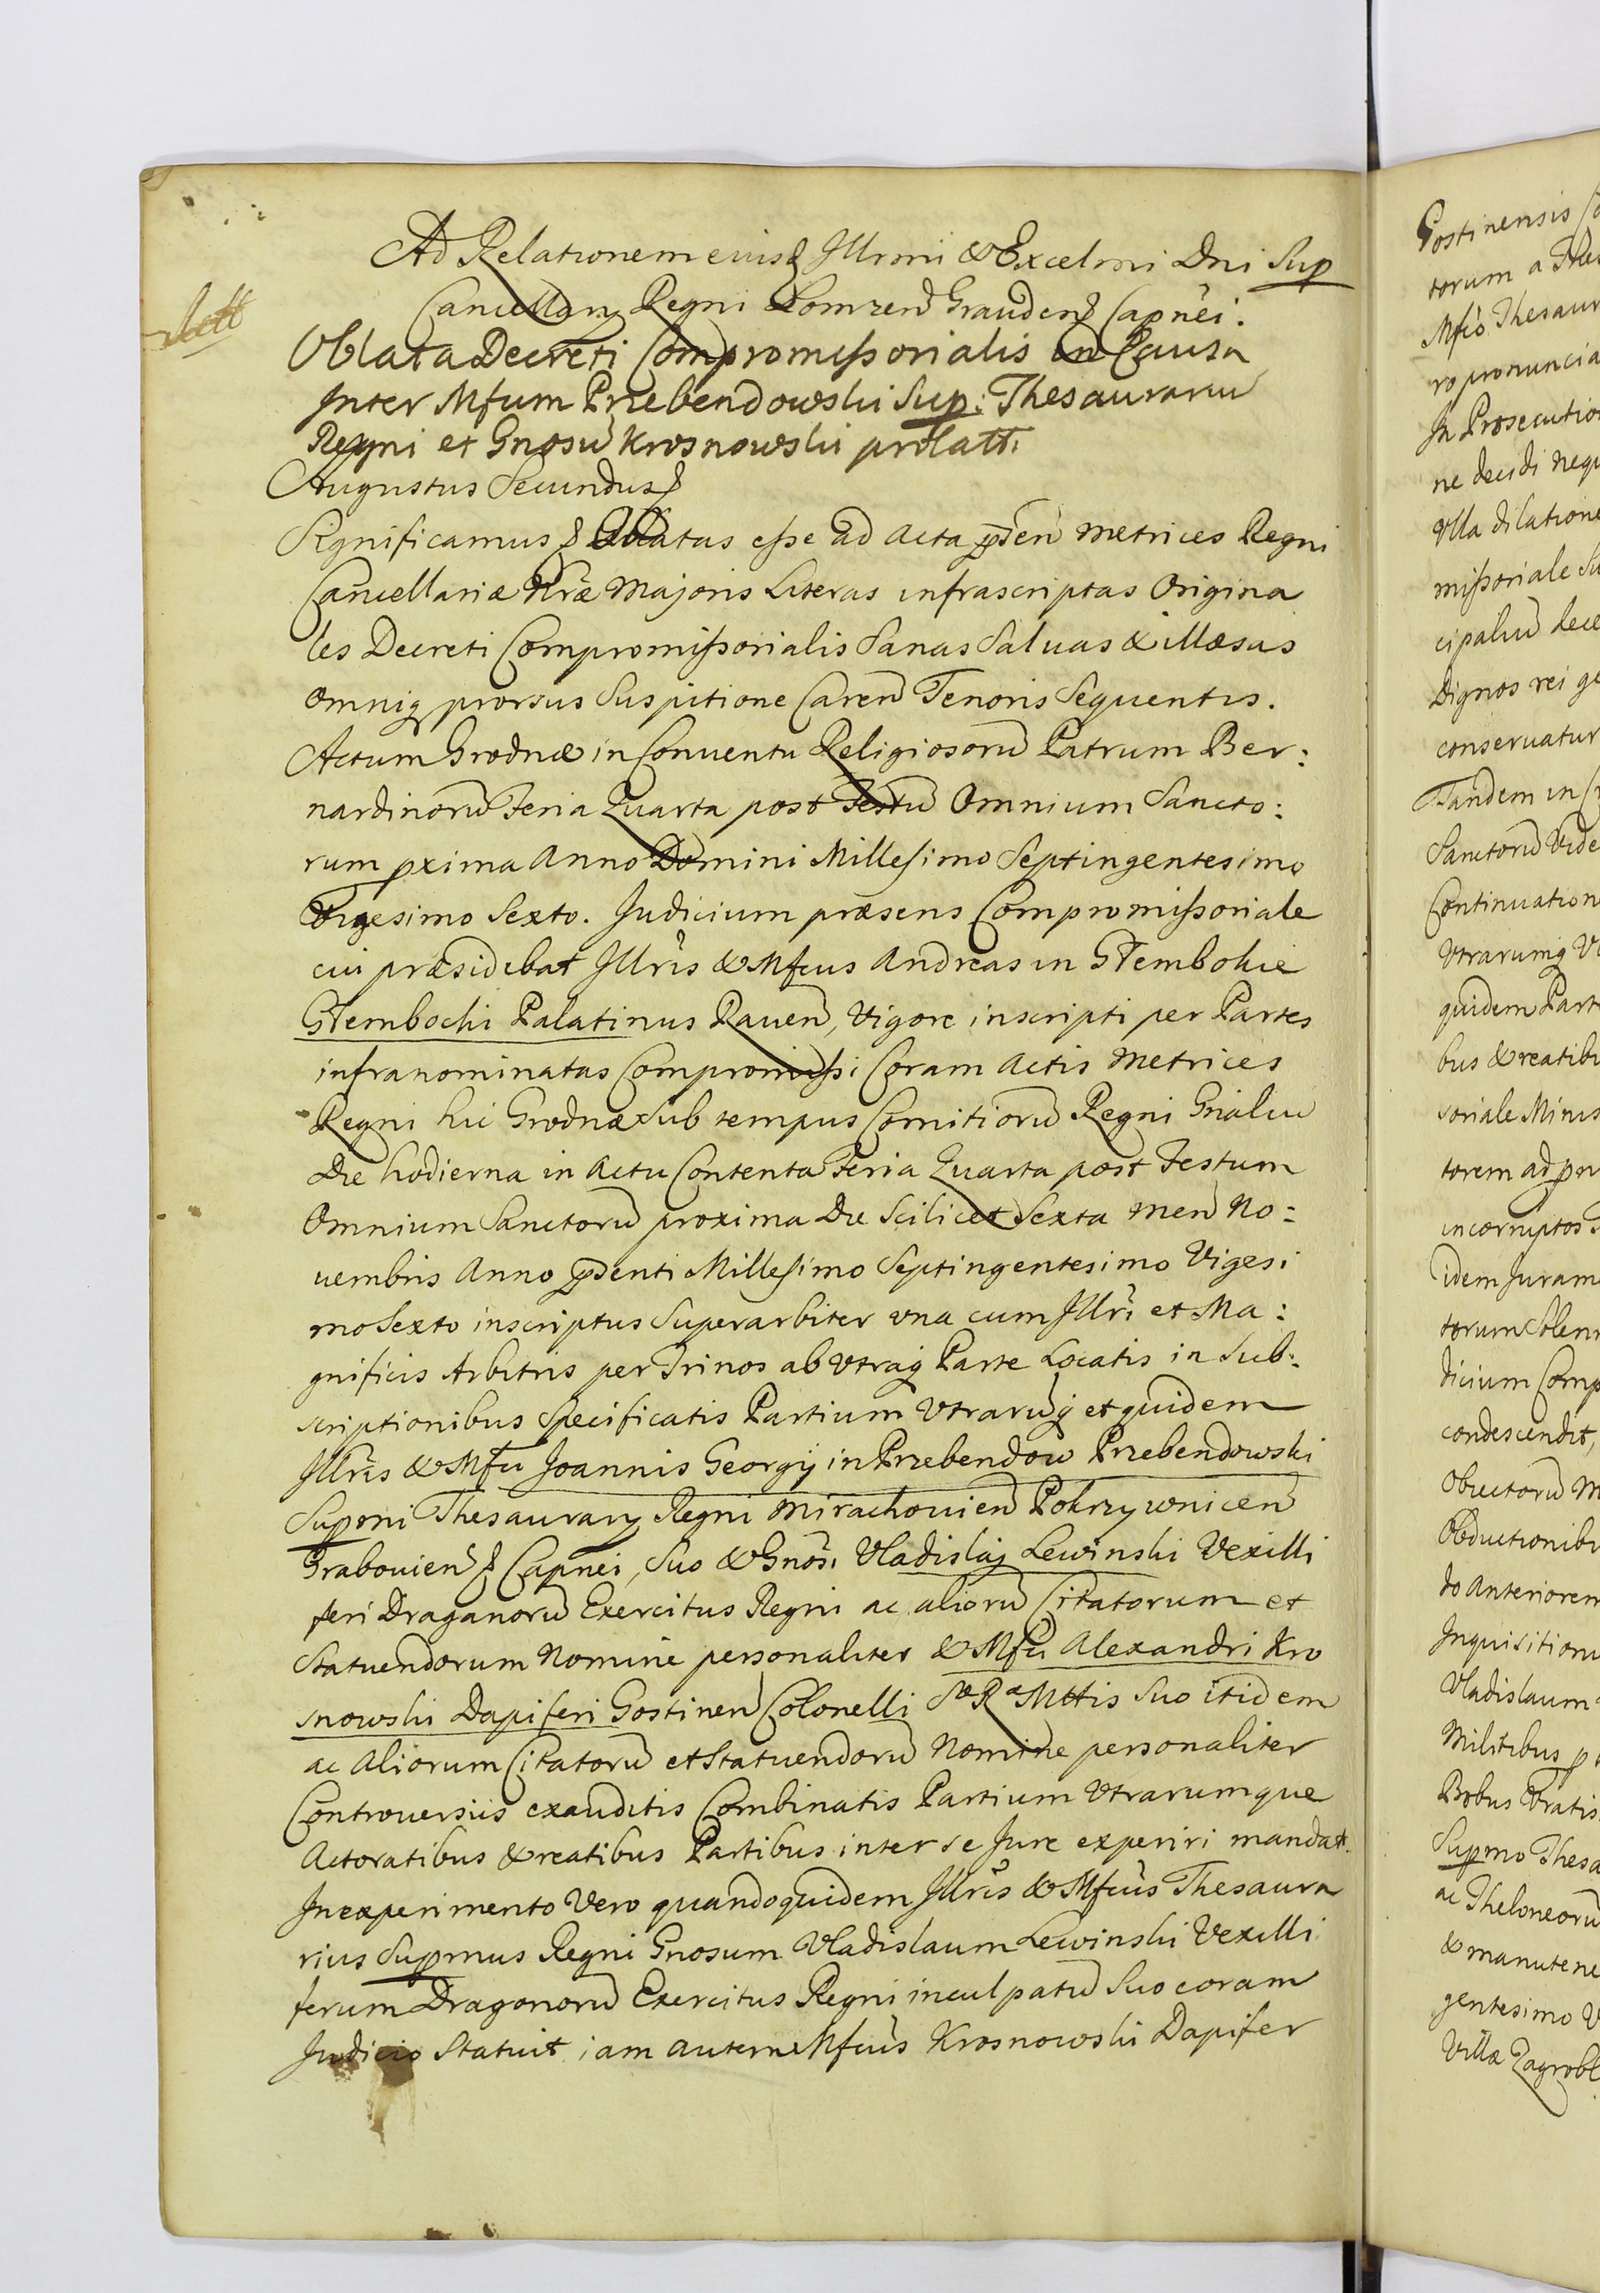 Ad Relationem eiusd Illrmi & Excelmi Dni Sup
Cancellarij Regni Lomzen Grauden & Capnei.
lect
Oblata Decreti Compromissorialis in Causa
Inter Mfum Przebendowski Sup: Thesaurariu
Regni et Gnosu Krosnowski prolatt.
Augustus Secundus &
Significamus & Oblatas esse ad Acta pnsen Metrices Regni
Cancellariæ Nræ Majoris Literas infrascriptas Origina
les Decreti Compromissorialis Sanas Saluas & illæsas
omniq prorsus Suspitione Caren Tenoris Sequentis.
Actum Grodnæ in Conuentu Religiosoru Patrum Ber:
nardinoru Feria Quarta post Festu Omnium Sancto:
rum pxima Anno Domini Millesimo Septingentesimo
Vigesimo Sexto. Judicium præsens Compromissoriale
cui præsidebat Illris & Mfcus Andreas in Glembokie
Glembocki Palatinus Rauen, Vigore inscripti per Partes
infranominatas Compromissi Coram Actis Metrices
Regni hic Grodnæ sub tempus Comitioru Regni Gnaliu
Die hodierna in Actu Contenta Feria Quarta post Festum
Omnium Sanctoru proxima Die Scilicet Sexta Men No:
uembris Anno pnsenti Millesimo Septingentesimo Viges:
mo Sexto inscriptus Superarbiter una cum Illri et Ma:
gnificis Arbitris per Trinos ab Utraq Parte Locatis in Sub:
scriptionibus Specificatis Partium Utraruq et quidem
Illris & Mfci Joannis Georgij in Przebendow Przebendowski
Suppmi Thesaurarij Regni Mirachouien Pokrzywnicen
Grabouien & Capnei, Suo & Gnosi Vladislaj Lewinski Vexilli
feri Draganoru Exercitus Regni ac alioru Citatorum et
Statuendorum Nomine personaliter & Mfci Alexandri Kro
snowski Dapiferi Gostinen Colonelli Sæ Ræ Mttis Suo itidem
ac Aliorum Citatoru et Statuendoru Nomine personaliter
Controuersiis exauditis Combinatis Partium Utrarumque
Actoratibus & reatibus Partibus inter se Jure experiri mandat.
In experimento Vero quandoquidem Illris & Mfcus Thesaura
rius Suppmus Regni Gnosum Vladislaum Lewinski Vexilli
ferum Dragonoru Exercitus Regni inculpatu Suo coram
Judicio Statuit iam autem Mfcus Krosnowski Dapifer
Gostinensis
torum a
Mfco Thesaur
ro pronuncia
In Prosecutio
ne decidi nequ
Ulla dilatione
missoriale Su
cipaliu dece
Dignos rei ge
conseruatur
Tandem in
Sanctoru Vide
Continuation
Utrarumq
quidem Part
bus & reatibu
soriale Minis
torem ad
incorruptos
idem Juram
torum Solen
dicium Comp
condescendit,
Obiectoru M
Obductionibu
do Anteriorem
Inquisitionu
Vladislaum
Militibus
Bobus
Suppmo Thesa
ac Theloneoru
& manutene
gentesimo V
Villæ Zagrobl